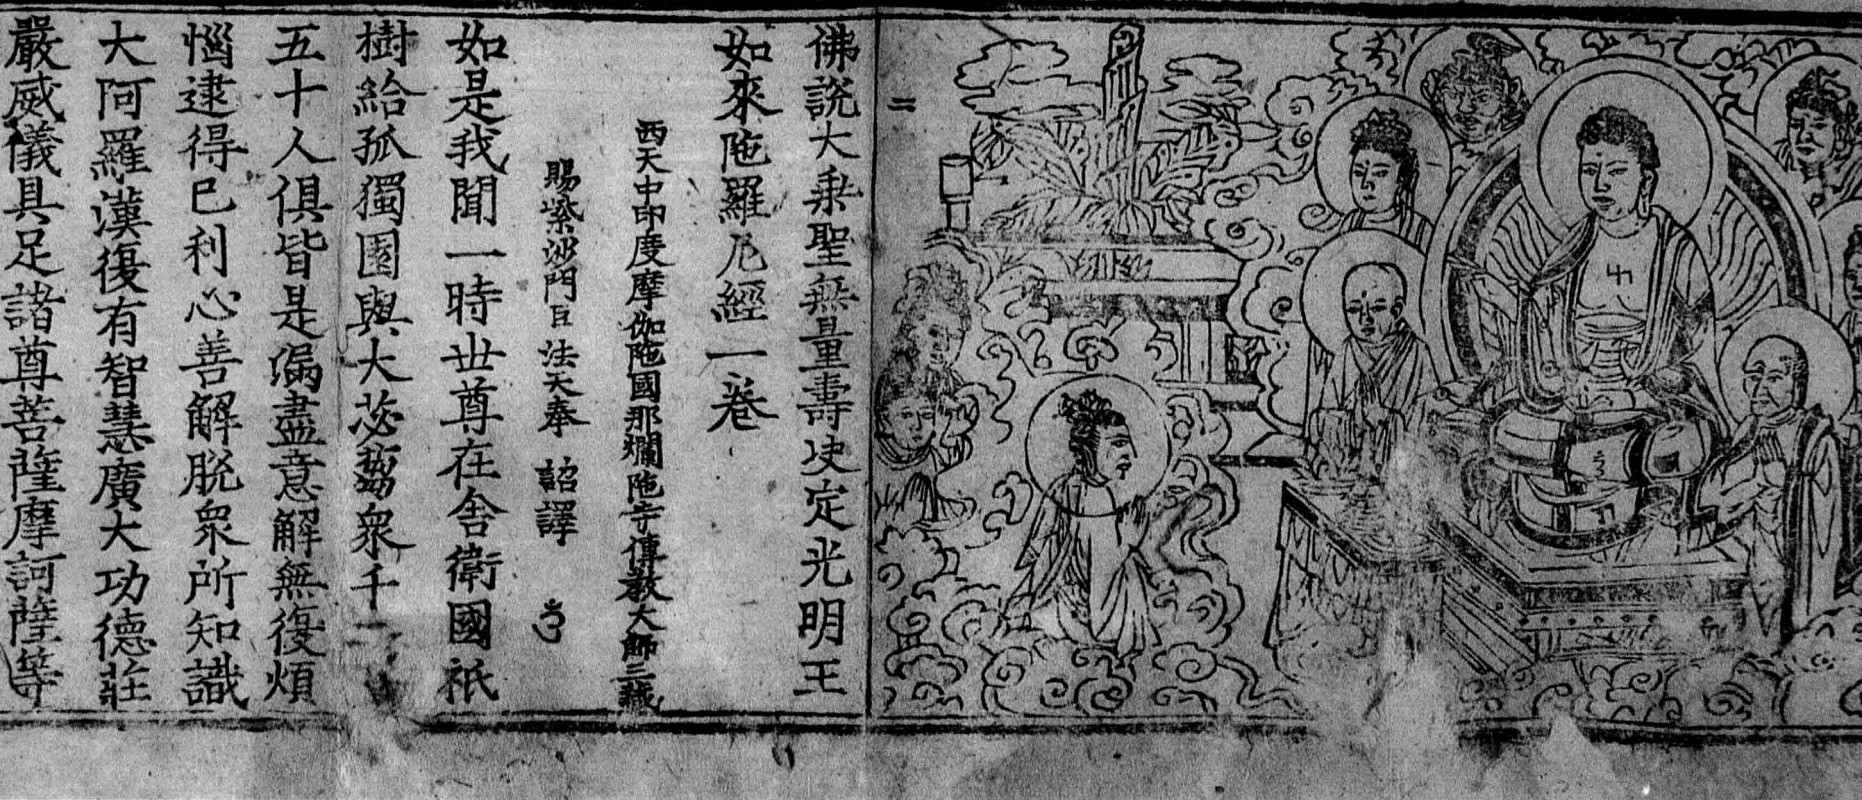 二
佛說大乗聖無量壽决定光明王
如來陁羅尼經一卷
西天中印度摩伽陁國那爛陁寺傳教大師三藏
賜紫沙門臣法天奉 詔譯
如是我聞一時世尊在舎衛國祇
樹給孤獨園與大苾蒭衆千二百
五十人俱皆是漏盡意解無復煩
惱逮得已利心善解脫衆所知識
大阿羅漢復有智慧廣大功德莊
嚴威儀具足諸尊菩薩摩訶薩等